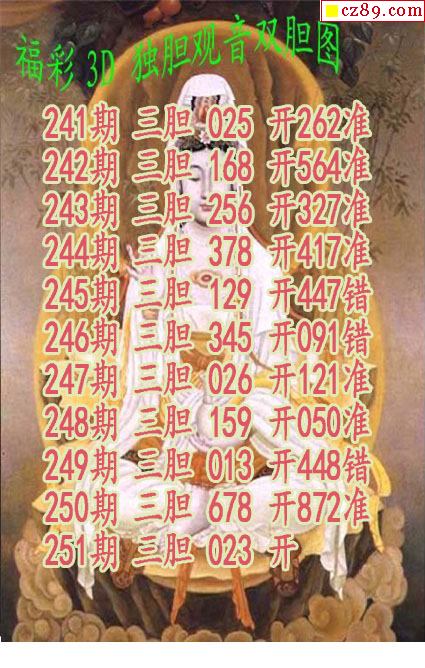 cz89.com
福彩 3D 独胆观音双胆图
241期 三胆 025 开262准
242期 三胆 168 开564准
243期 三胆 256 开327准
244期 三胆 378 开417准
245期 三胆 129 开447错
246期 三胆 345 开091错
247期 三胆 026 开121准
248期 三胆 159 开050准
249期 三胆 013 开448错
250期 三胆 678 开872准
251期 三胆 023 开